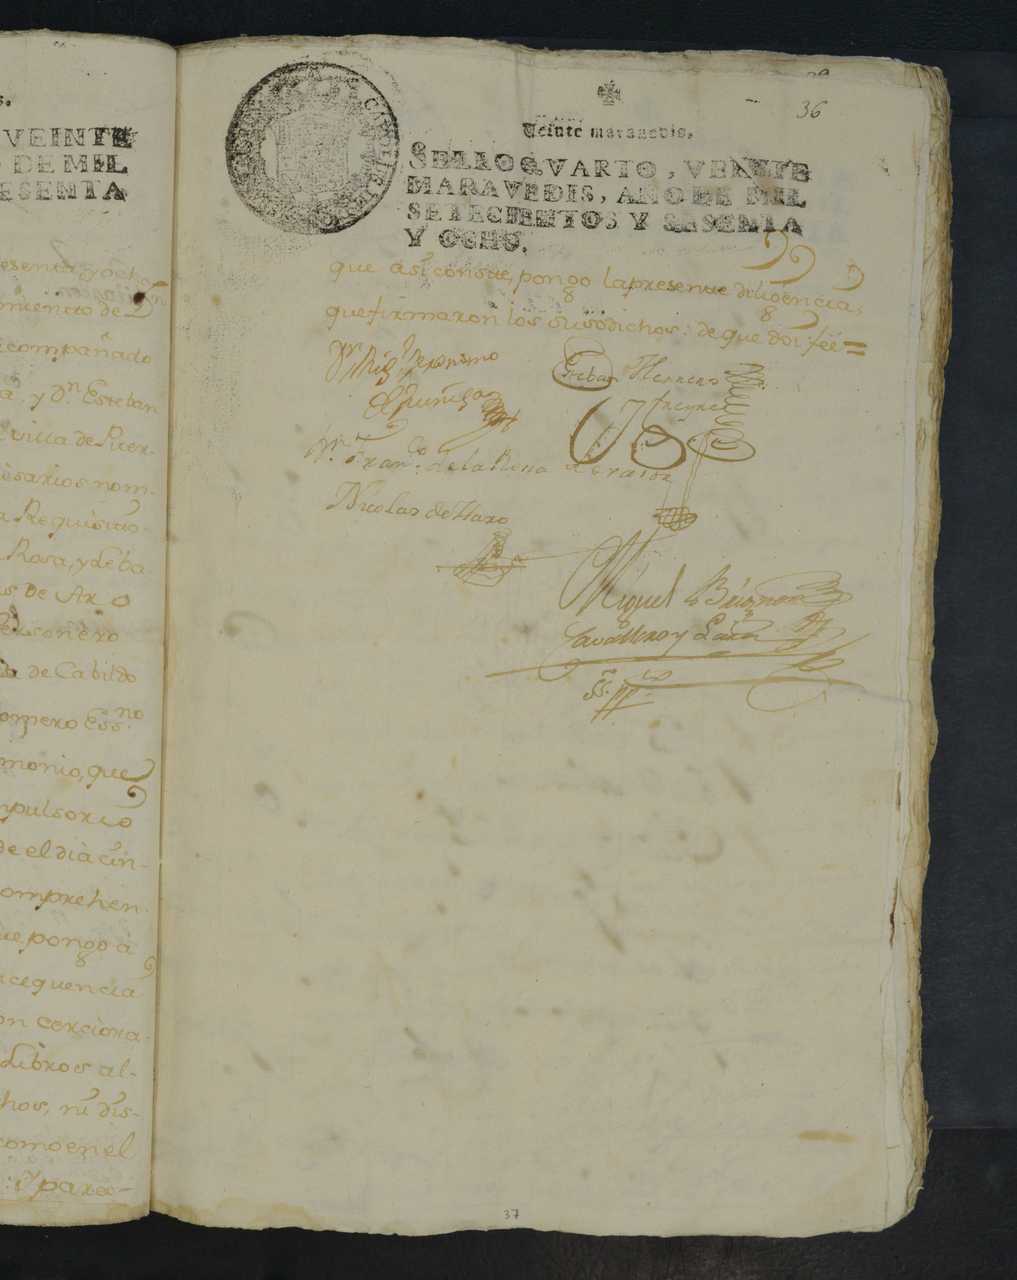 s.
VEINTE
O DE MIL
ESENTA
esenta, y ocho
miento de Dn
compañado
a. y Dn. Esteban
villa de Puer-
esarios nom-
a Requisito-
Rosa, y de ba
s De Ar o
Personero
de Cabildo
omero Essno.
monio, que
mpulsorio
de el dia cin-
omprehen-
ue pongo à
cequencia
on cerciora-
Libros al-
hos, ni dis-
como en el
: y pareo-
36
Veinte maravedis.
SELLO QVARTO, VEINTE
MARAVEDIS, AÑO DE MIL
SETECIENTOS Y SESENTA
Y OCHO.
que asi conste, pongo la presente diligencia,
que firmaron los susodichos: de que doi feé =
Geronimo
Esteban Herrero
Freyre
Franco. de la Rosa
Nicolas de Haro
Miguel
Cavallero y Lara
37